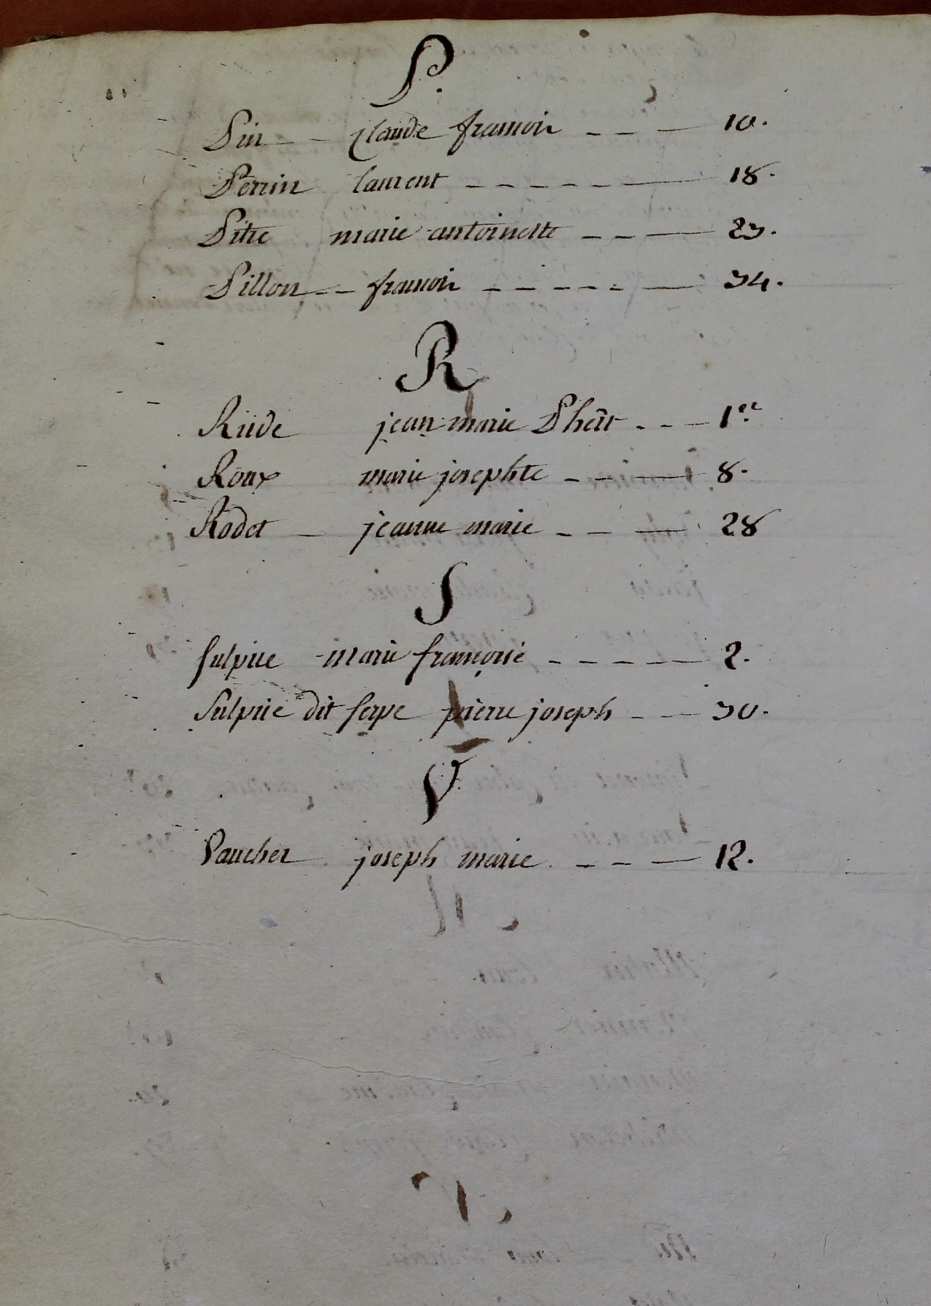 P.
Pin claude francois - - - 10.
Perrin laurent - - - - - - 18.
Petite marie antoinette - - - 23.
Pillon - - francois - - - - - - 34.
R
Rude jean marie - - - 1er
Roux marie josephte - - - 8.
Rodet - jeanne marie - - - 28
S
Sulpice marie francoise - - - - - 2.
Sulpice dit serpe pierre joseph - - - 30.
V
Vaucher joseph marie - - - - 12.